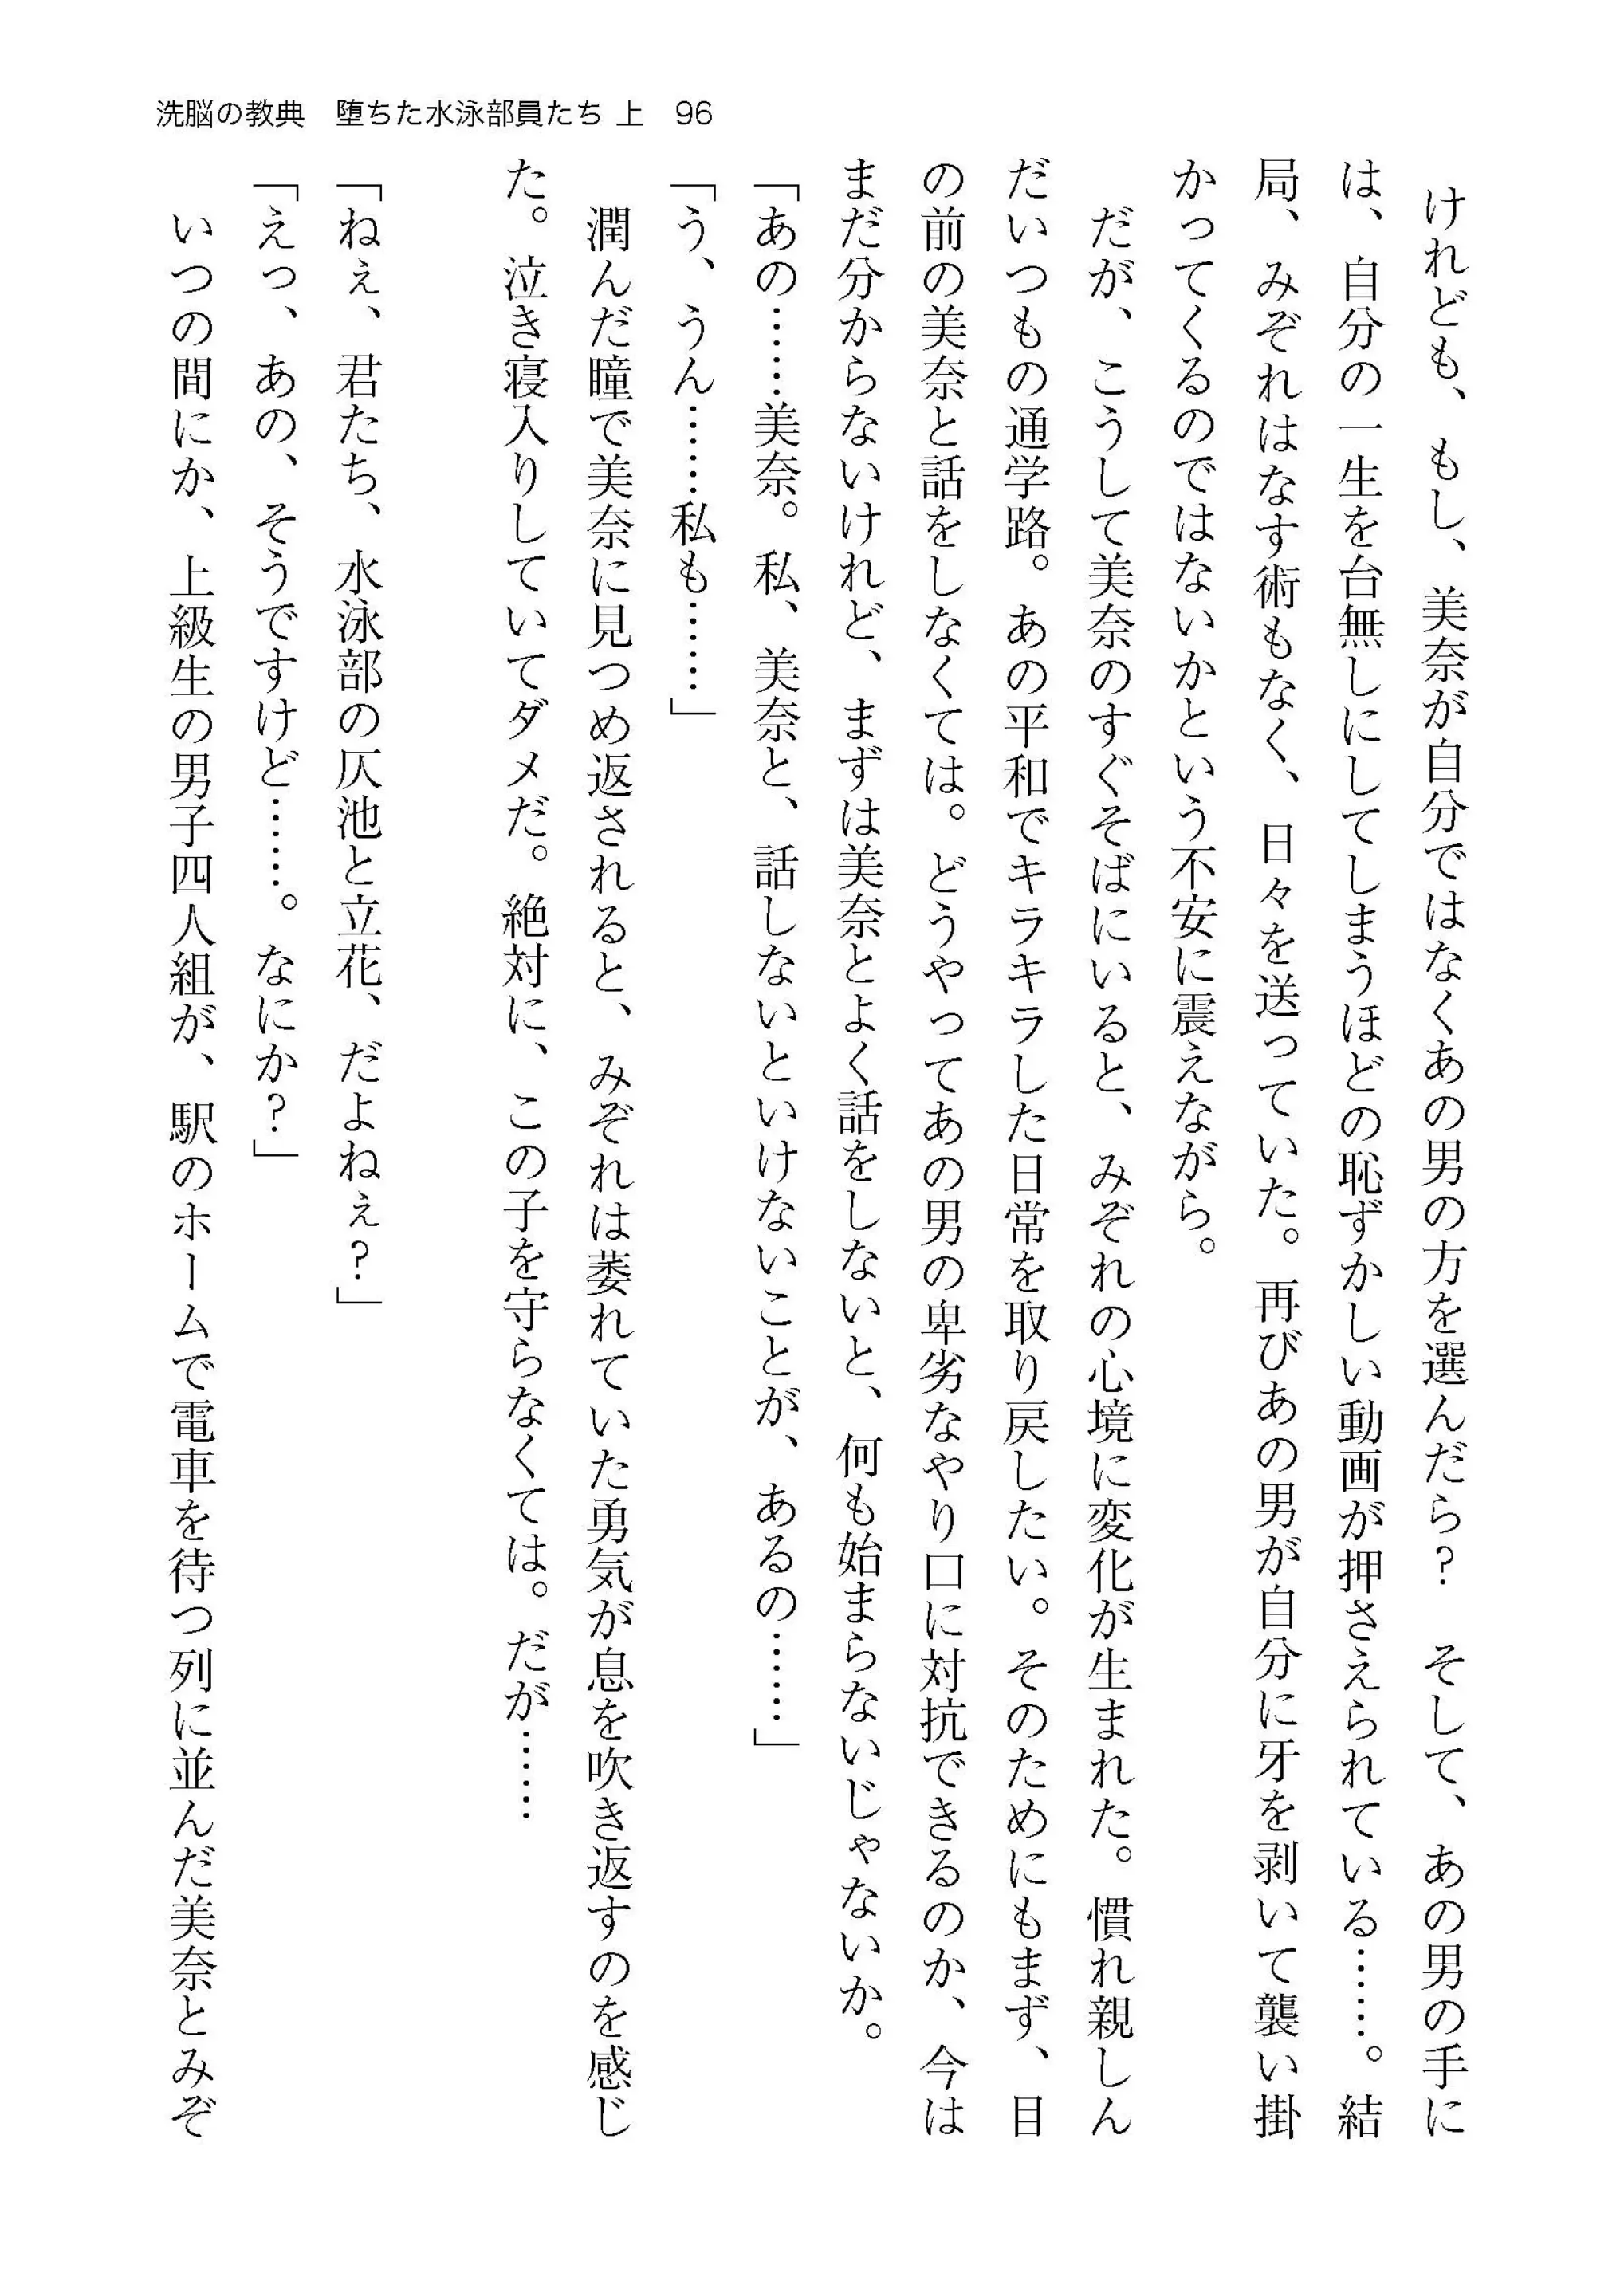 洗脳の教典　堕ちた水泳部員たち 上　96
けれども、もし、美奈が自分ではなくあの男の方を選んだら？　そして、あの男の手に
は、自分の一生を台無しにしてしまうほどの恥ずかしい動画が押さえられている……。結
局、みぞれはなす術もなく、日々を送っていた。再びあの男が自分に牙を剥いて襲い掛
かってくるのではないかという不安に震えながら。
だが、こうして美奈のすぐそばにいると、みぞれの心境に変化が生まれた。慣れ親しん
だいつもの通学路。あの平和でキラキラした日常を取り戻したい。そのためにもまず、目
の前の美奈と話をしなくては。どうやってあの男の卑劣なやり口に対抗できるのか、今は
まだ分からないけれど、まずは美奈とよく話をしないと、何も始まらないじゃないか。
「あの……美奈。私、美奈と、話しないといけないことが、あるの……」
「う、うん……私も……」
潤んだ瞳で美奈に見つめ返されると、みぞれは萎れていた勇気が息を吹き返すのを感じ
た。泣き寝入りしていてダメだ。絶対に、この子を守らなくては。だが……
「ねぇ、君たち、水泳部の仄池と立花、だよねぇ？」
「えっ、あの、そうですけど……。なにか？」
いつの間にか、上級生の男子四人組が、駅のホームで電車を待つ列に並んだ美奈とみぞ